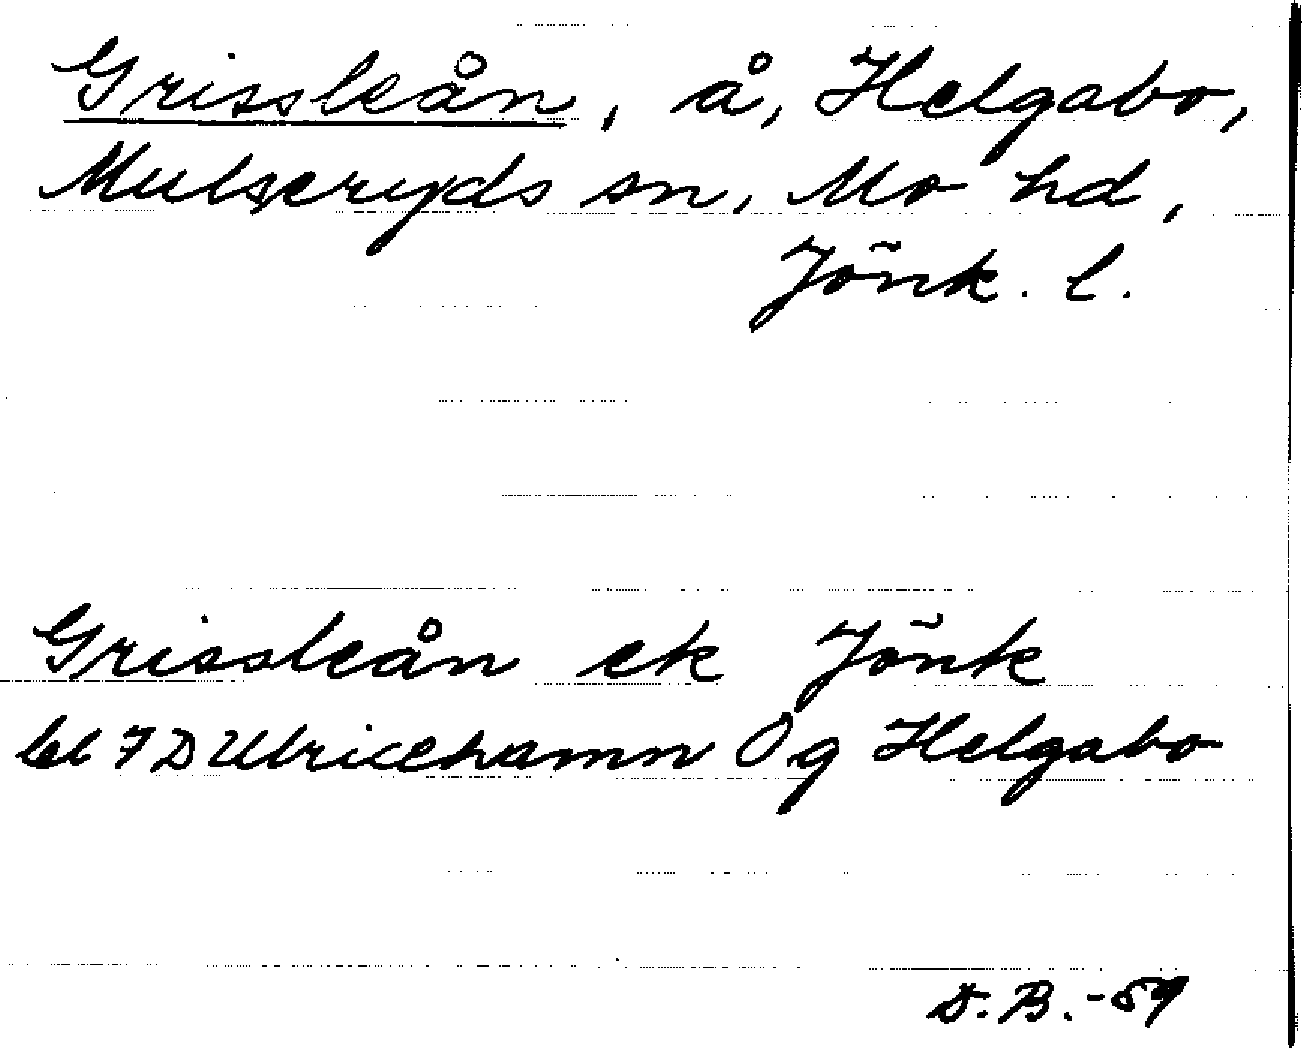 Grissleån, å, Helgabo,
Mulseryds sn, Mo hd,
Jönk. l.
Grissleån ek Jönk
bl 7D Ulricehamn Og Helgabo
D.B.-59